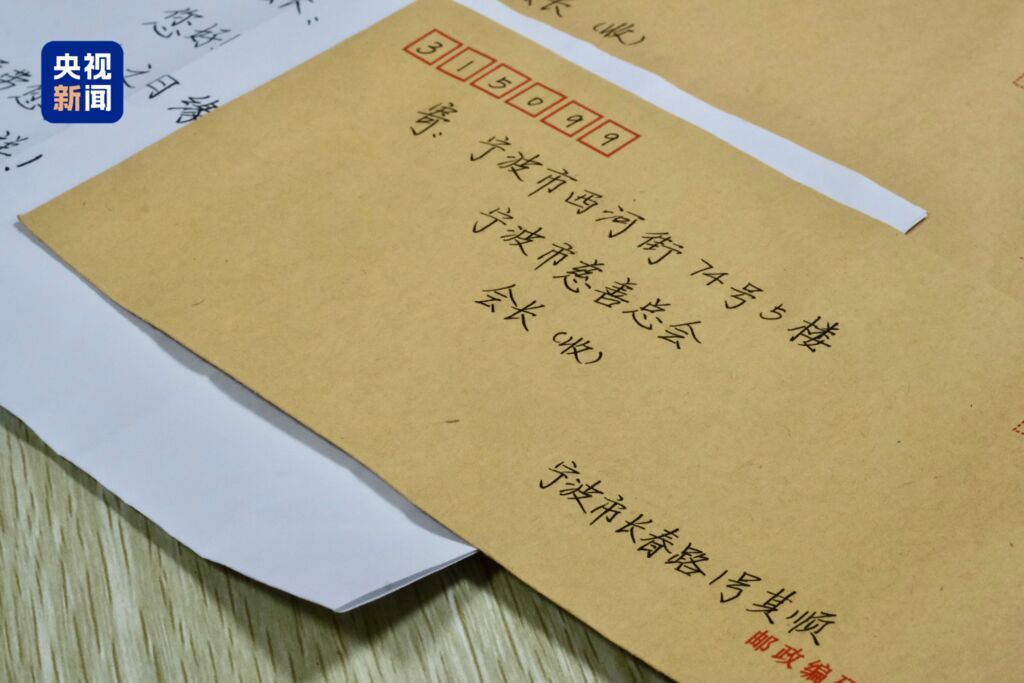 央视
新闻
您好!
之日
长 (收)
315099
寄: 宁波市西河街74号5楼
宁波市慈善总会
会长 (收)
宁波市长春路1号其顺
邮政编